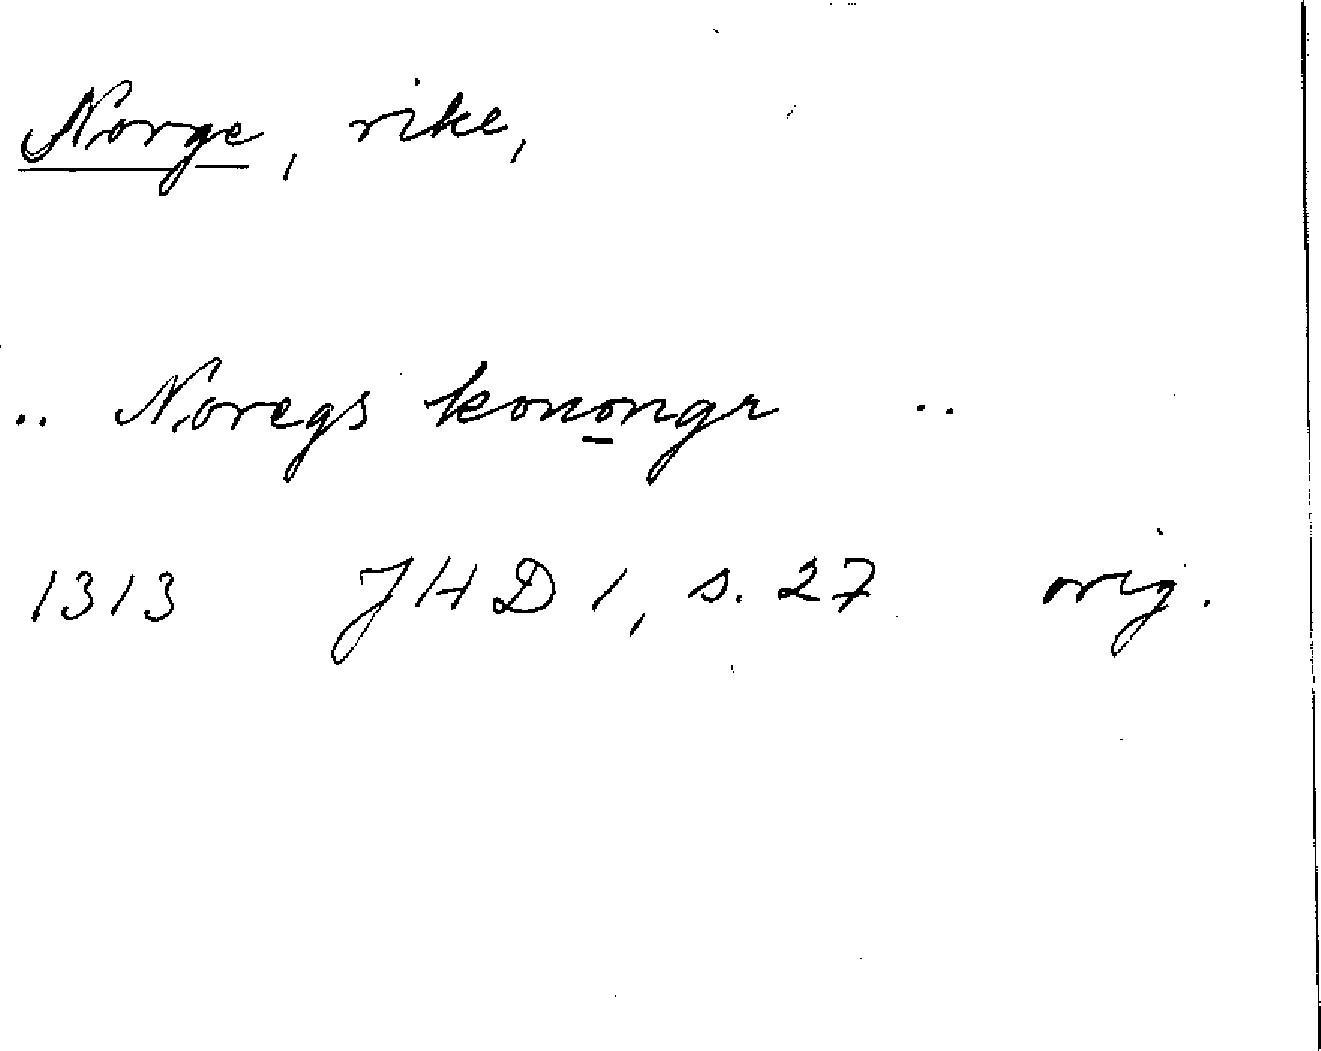 Norge, rike,
.. Noregs konongr ..
1313 JHD 1, s. 27 orig.